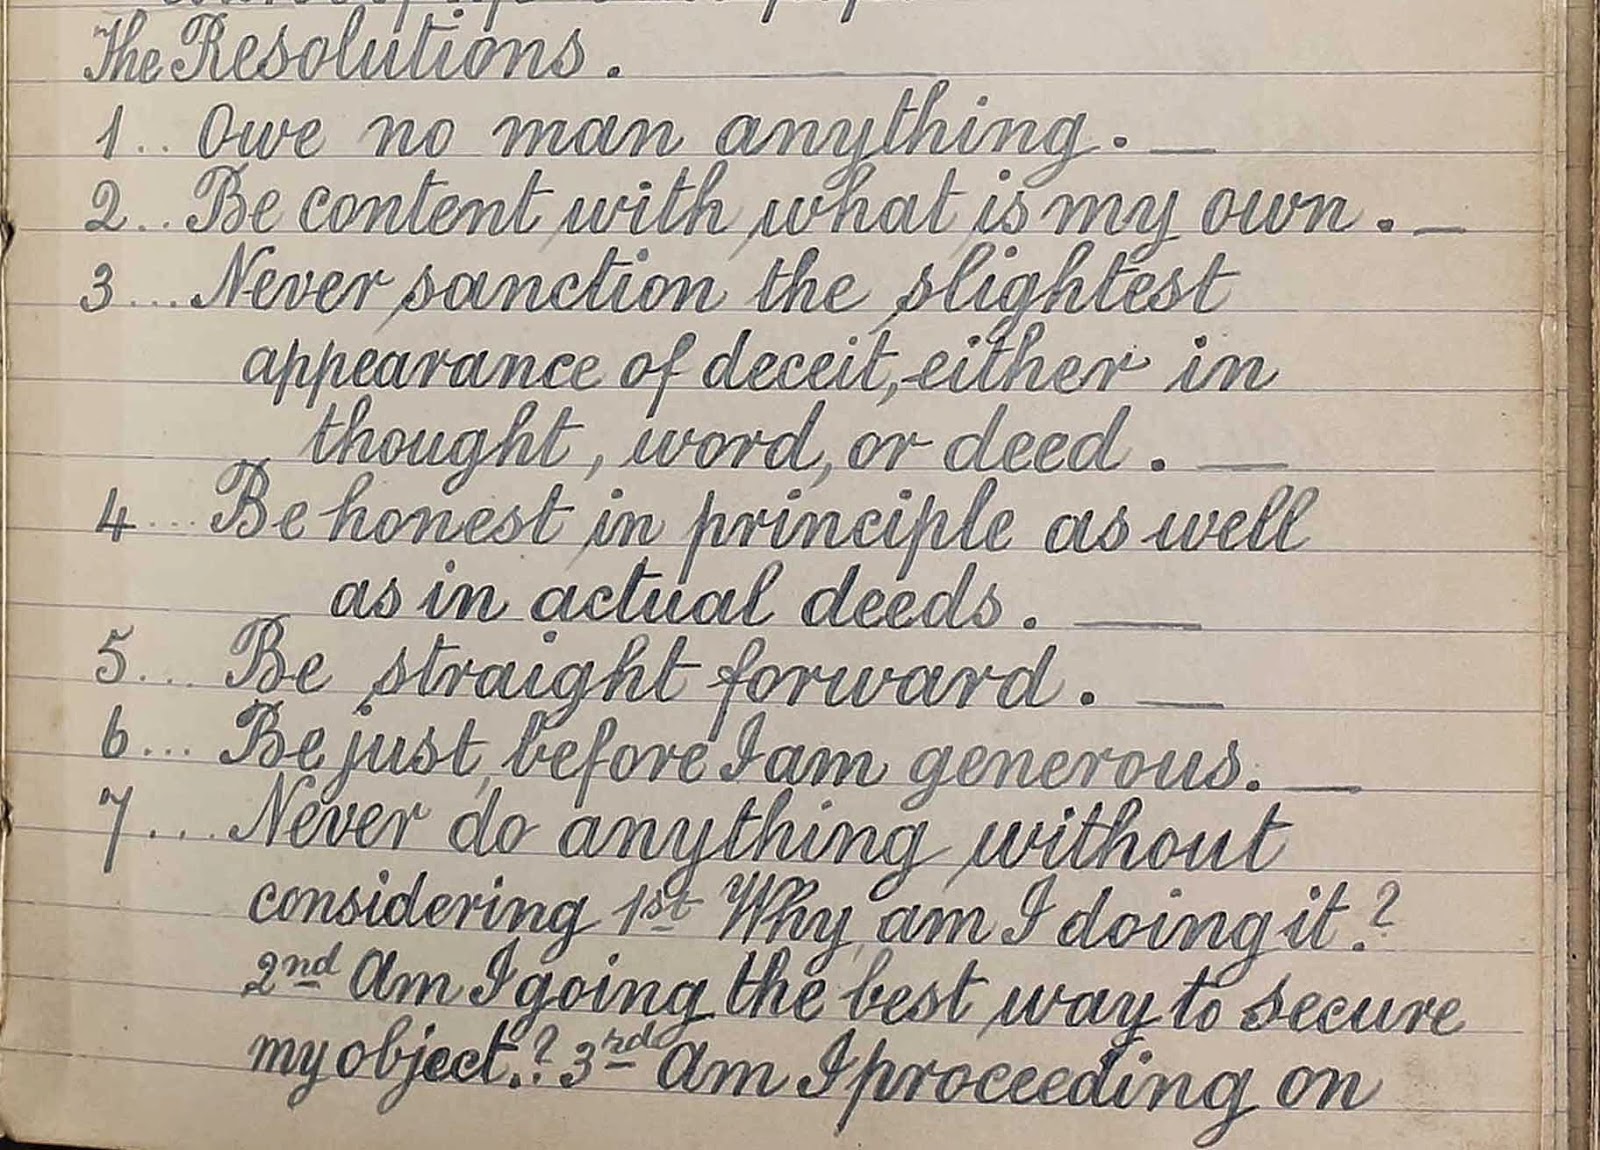 The Resolutions.
1.. Owe no man anything. —
2.. Be content with what is my own. —
3... Never sanction the slightest
appearance of deceit, either in
thought, word, or deed. —
4.... Be honest in principle as well
as in actual deeds. —
5.... Be straight forward. —
6... Be just, before I am generous. —
7.... Never do anything without
considering 1st Why am I doing it.?
2nd Am I going the best way to secure
my object.? 3rd Am I proceeding on